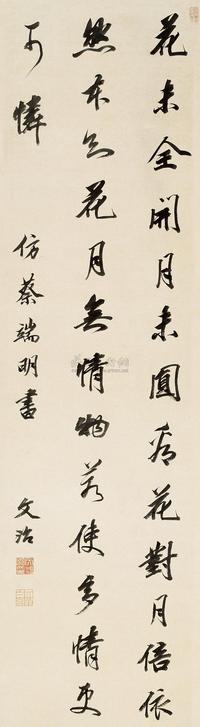 花未全開月未圓看花對月倍依
然本知花月無情物若使多情更
可憐
仿蔡端明書
文治